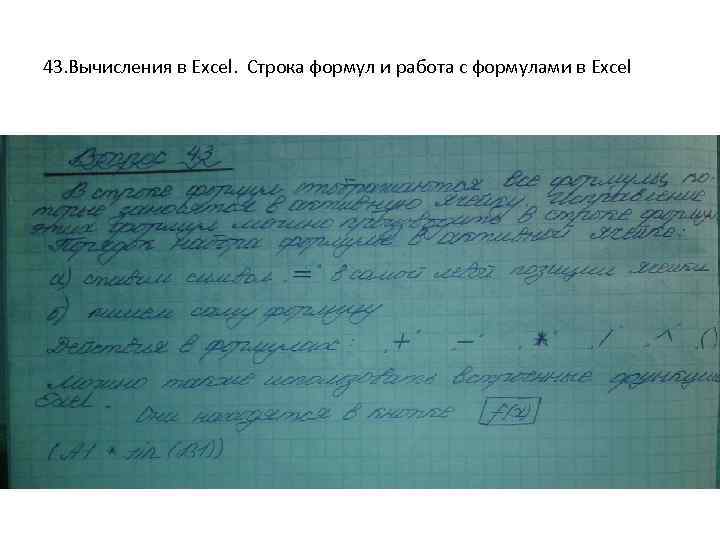 43. Вычисления в Excel. Строка формул и работа с формулами в Excel
Вопрос 43
В строке формул отображаются все формулы ко-
торые заносятся в активную ячейку. Исправление
этих формул можно производить в строке формул
Порядок набора формулы в активной ячейке:
а) ставим символ "=" в самой левой позиции ячейки
б) пишем саму формулу
Действия в формулах: "+" "-" "*" "/" "^" "()
Можно также использовать встроенные функции
Excel. Они находятся в кнопке f(x)
(A1 * sin (B1))